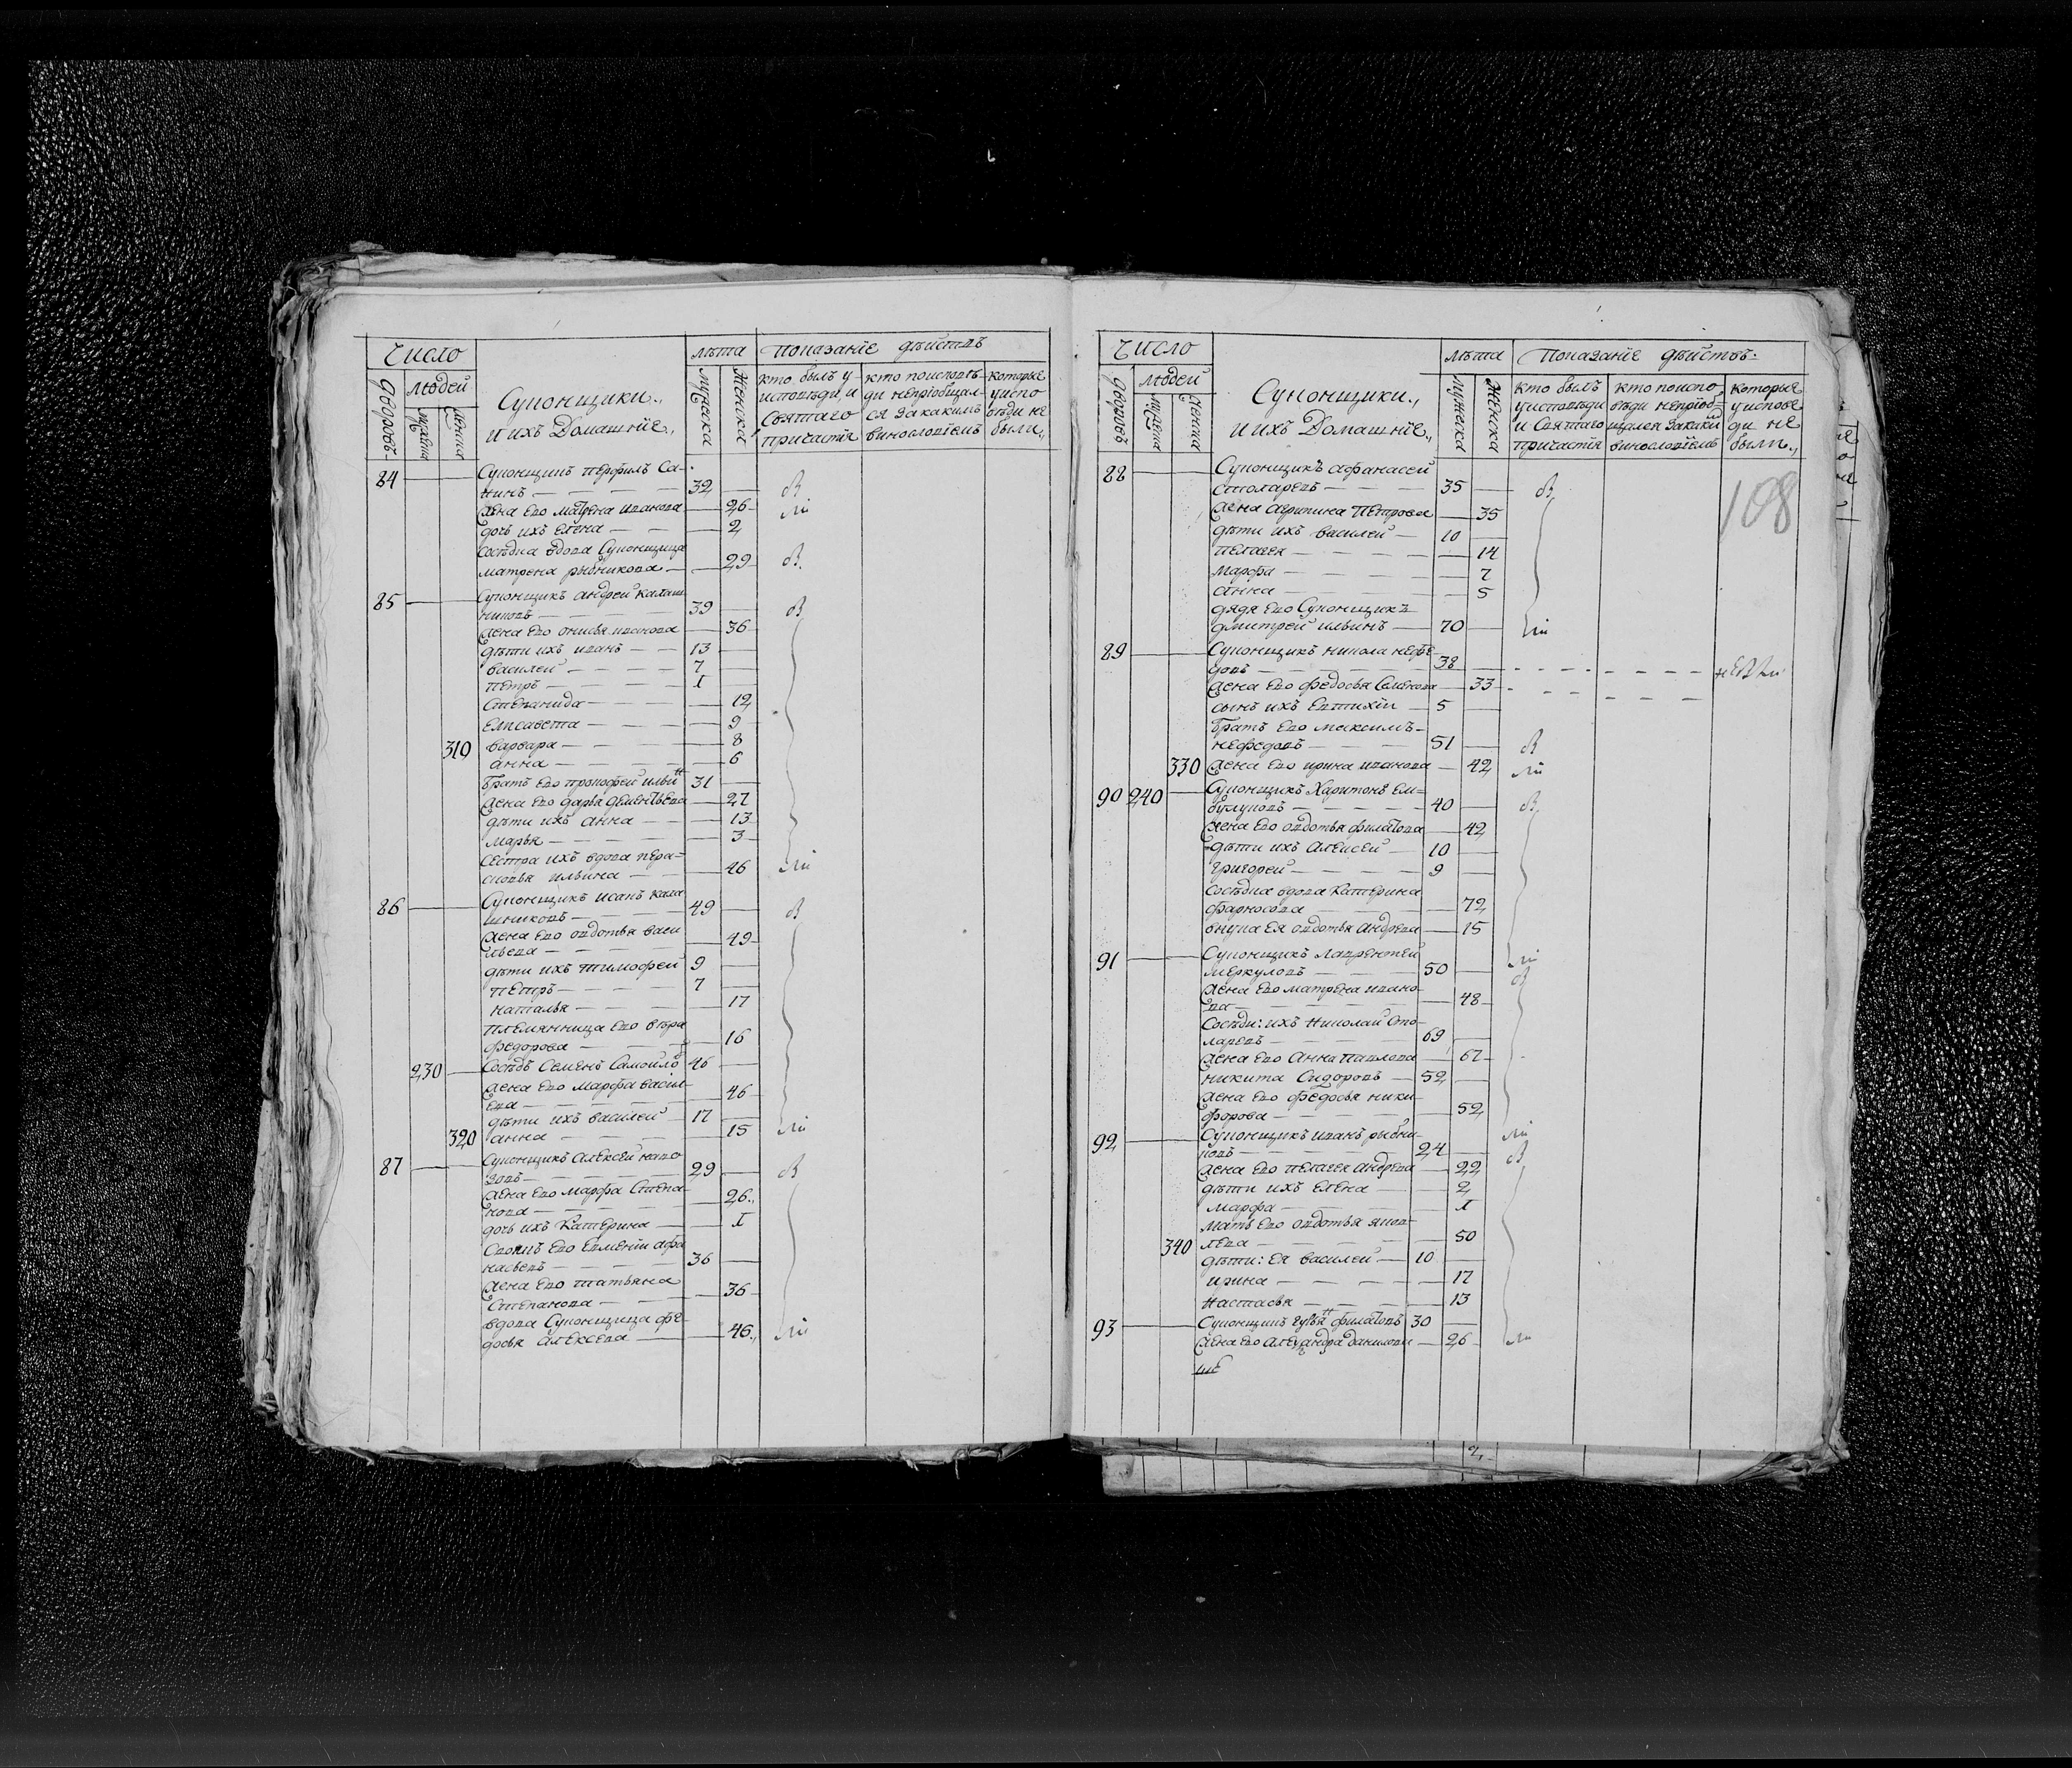 Число
Лѣта
Показанїе дѣйствъ
дворовъ
Людей
мужеска
женска
Суконщики.,
И ихъ Домашнїе.,
мужеска
Женска
кто былъ у исповѣди, и Святаго причастїя
кто поисповѣди непрїобщался за какимъ винословїемъ
которые у исповѣди не были.,
84
Суконщикъ Перфилъ Са-
нинъ 32
жена Ево матрена иванова 26
дочь ихъ Елена 2
Сосѣдка вдова Суконщица
матрена рыбникова 29
85
Суконщикъ андрей калаш
никовъ 39
жена Ево онисья иванова 36
дѣти ихъ иванъ 13
василей 7
петръ 1
Степанида 12
Елисавета 9
310 варвара 8
анна 6
братъ Ево прокофей ильинъ 31
жена Ево дарья дементьева 27
дѣти ихъ анна 13
марья 3
сестра ихъ вдова пера-
сковья ильина 46
86
Суконщикъ исанъ кала
шниковъ 49
жена Ево овдотья васи
льева 49
дѣти ихъ тимофей 9
петръ 7
наталья 17
племянница Ево вѣра
федорова 16
230 Сосѣдъ Семенъ Самойло 46
жена Ево Марфа васил-
ева 46
дѣти ихъ василей 17
320 анна 15
87
Суконщикъ алексей наво
зовъ 29
жена Ево марфа Степа-
нова 26.,
дочь ихъ Катерина 1
Своякъ Ево Евменїи афа
насьевъ 36
жена Ево татьяна
Степанова 36
вдова Суконщица фе-
досья алексева 46.,
Число
Лѣта
Показанїе дѣйствъ:
дворовъ
Людей
мужеска
женска
Суконщики.,
И ихъ Домашнїе.,
Мужеска
Женска
кто былъ у исповѣди и Святаго причастїя
кто поисповѣди непрїобщался закакимъ винословїемъ
Которые у исповеди не были.,
108
88
Суконщикъ афанасей
столаревъ 35
жена агрипина Петрова 35
дѣти ихъ василей 10
пелагея 14
марфа 7
анна 5
дядя Ево Суконщикъ
дмитрей ильинъ 70
89
Суконщикъ никола нефе-
довъ 38 небыли
жена Ево федосья Семенова 33
сынъ ихъ Евтихїи 5
братъ Ево максимъ-
нефедовъ 51
330 жена Ево ирина иванова 42
90 240
Суконщикъ Харитонъ Ем-
булуковъ 40
жена Ево овдотья филатова 42
дѣти ихъ Алексей 10
григорей 9
Сосѣдка вдова Катерина
фарносова 72
внука Ея овдотья андрева 15
91
Суконщикъ Лаврентей
меркуловъ 50
жена Ево матрена ивано-
ва 48
Сосѣди: ихъ николай Сто-
ларевъ 69
жена Ево анна павлова 67
никита Сидоровъ 52
жена Ево федосья ники-
форова 52
92
Суконщикъ иванъ рыбни-
ковъ 24
жена Ево пелагея андрева 22
дѣти ихъ Елена 2
марфа 1
мать Ево овдотья яков-
340 лева 50
дѣти: Ея василей 10
ирина 17
настасья 13
93
Суконщикъ филатовъ 30
жена Ево александра данилова 26